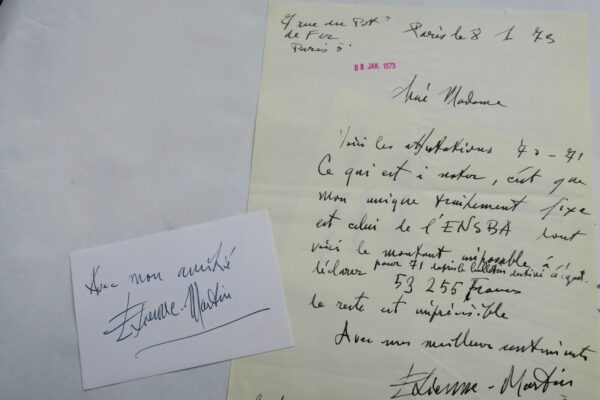 rue du Pot
de Fer
Paris 5
Paris le 8 1 73
08 JAN. 1973
Madame
Voici les attestations 70-71
Ce qui est à noter, c'est que
mon unique traitement fixe
est celui de l'ENSBA dont
voici le montant imposable à
déclarer pour 71
53 255 Francs
le reste est imprévisible
Avec mes meilleurs sentiments
Etienne-Martin
Avec mon amitié
Etienne-Martin